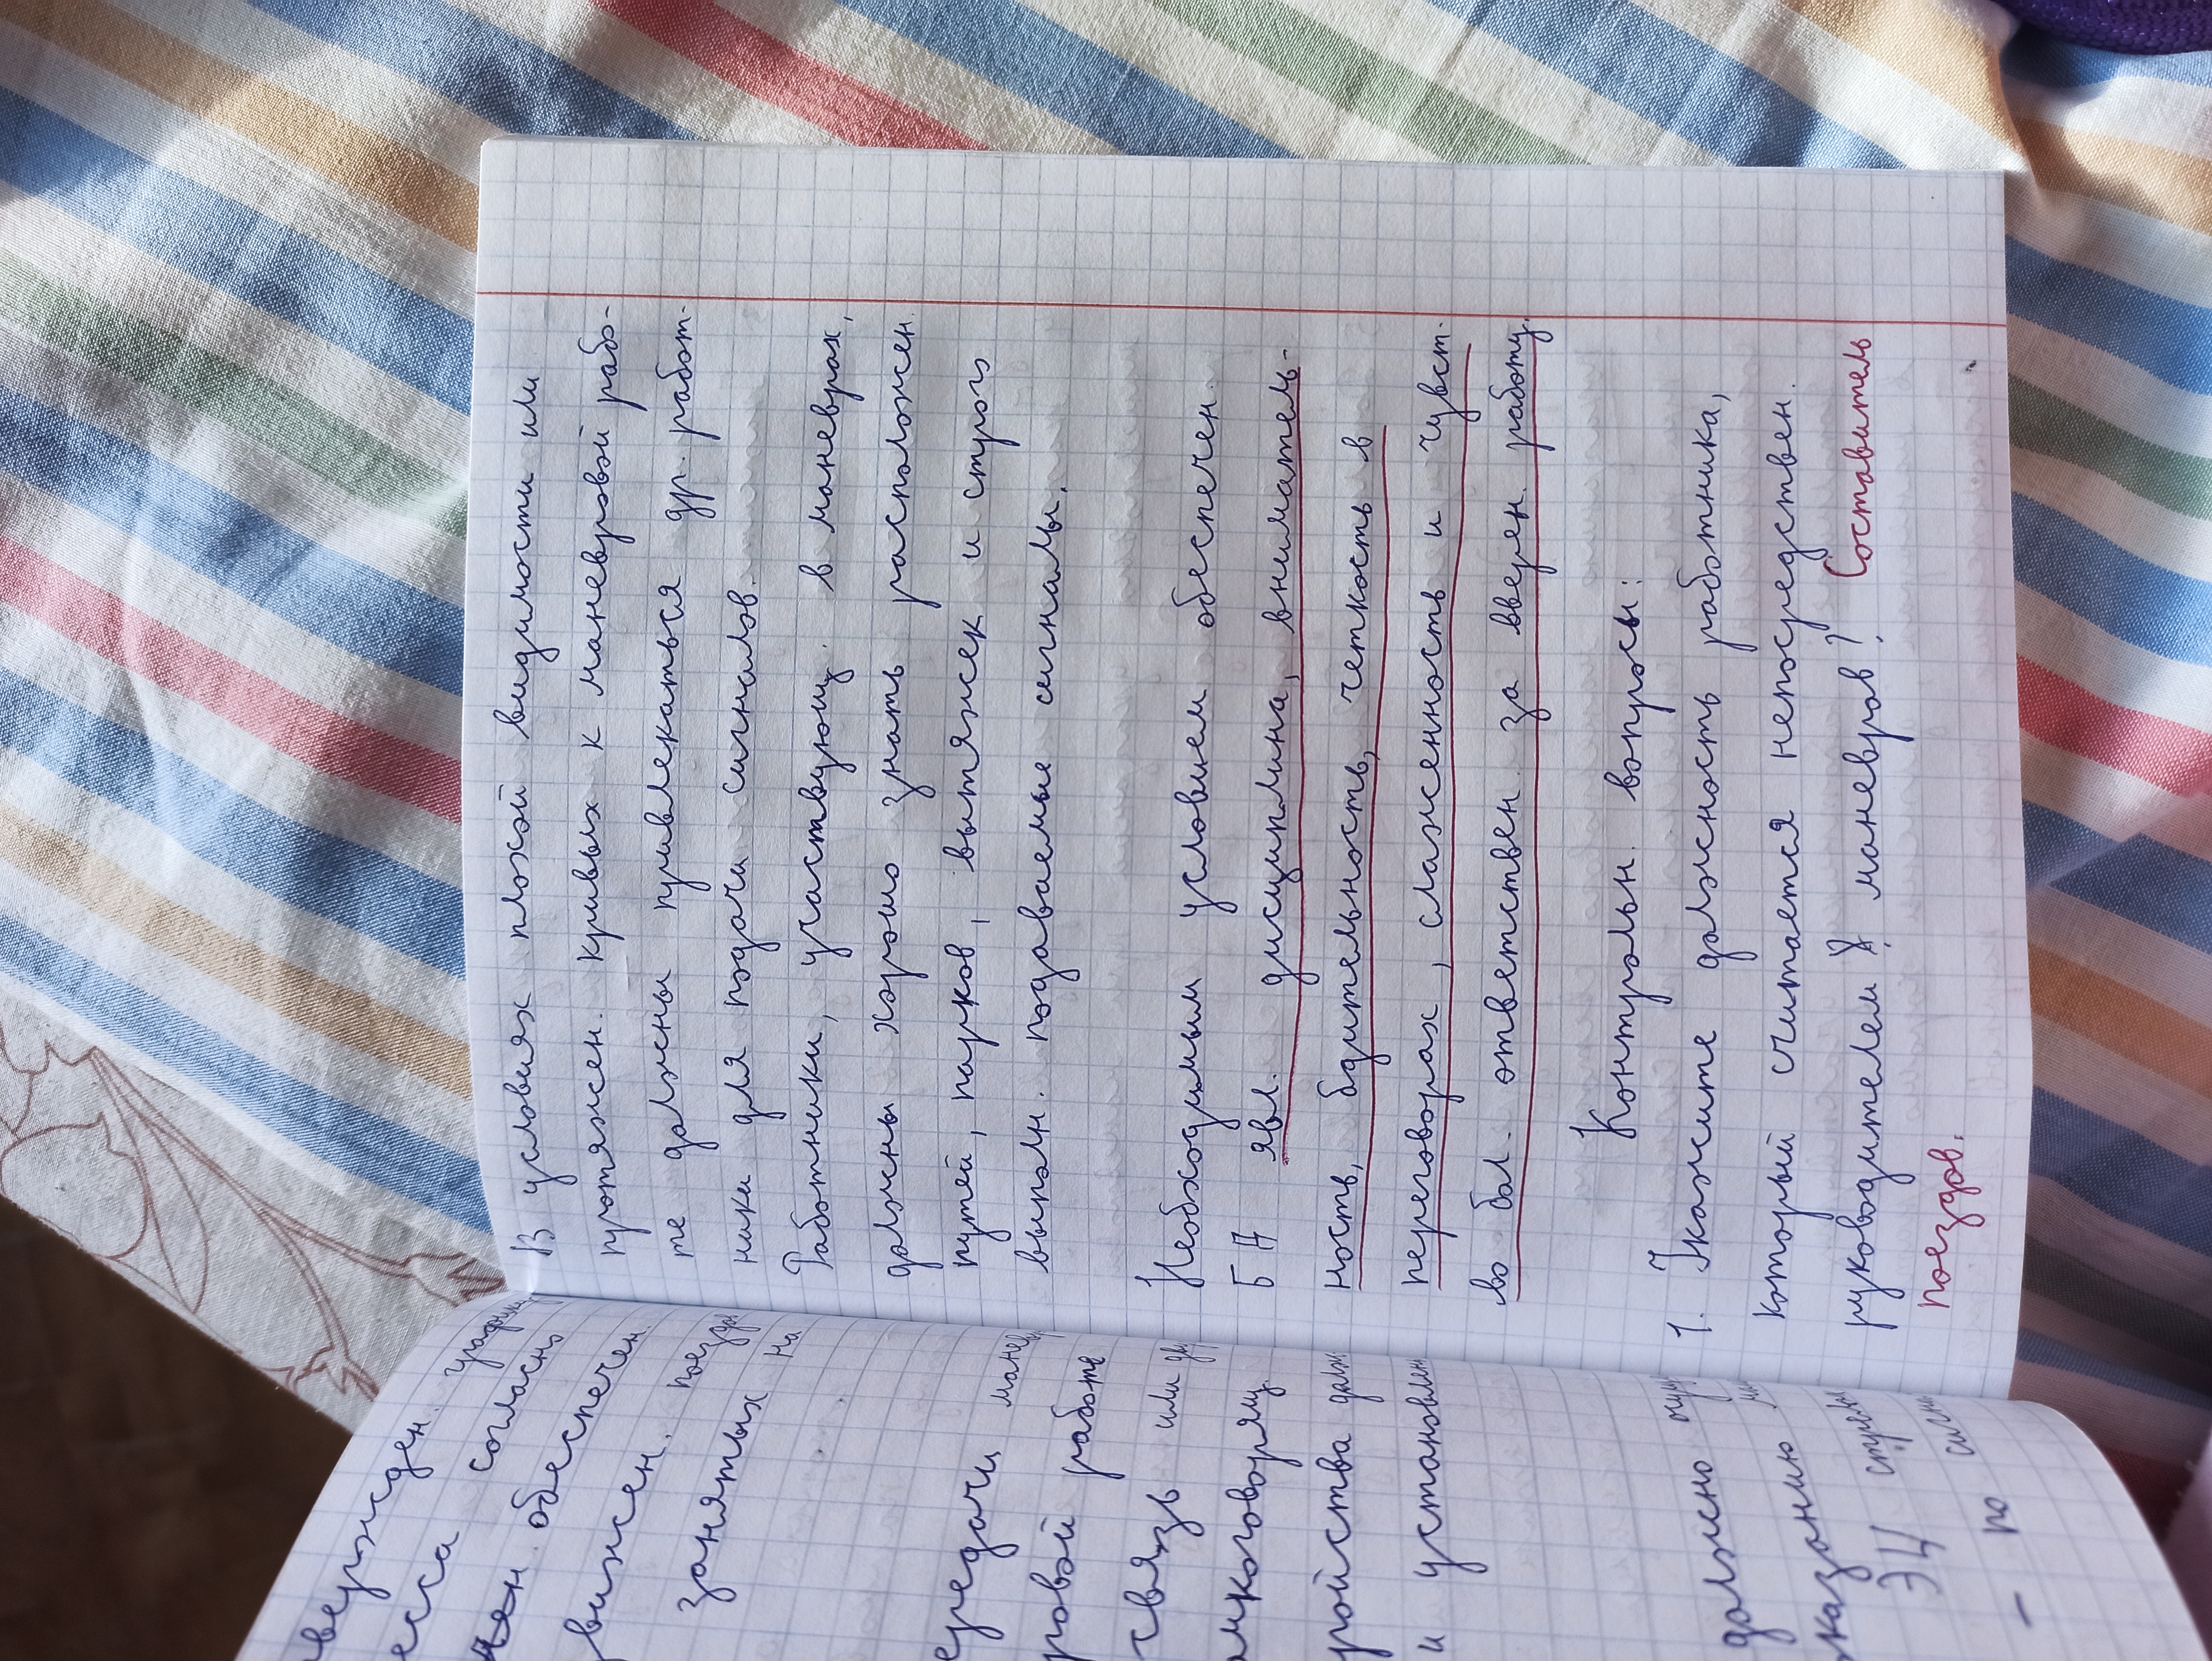 В условиях плохой видимости или
протяжен. кривых к маневровой рабо-
те должны привлекаться др. работ-
ники для подачи сигналов.
Работники, участвующ. в маневрах,
должны хорошо знать расположен.
путей, парков, вытяжек и строго
выполн. подаваемые сигналы.
Необходимым условием обеспечен.
БД явл. дисциплина, вниматель-
ность, бдительность, четкость в
переговорах, слаженность и чувст-
во бол. ответствен. за вверен. работу.
Контрольн. вопросы:
1. Укажите должность работника,
который считается непосредствен.
руководителем маневров? Составитель
поездов.
сса согласно
обеспечен.
движен. поезда
занятых на
ровой работе
связь или
и установлен
должно
ЭЦ
- по